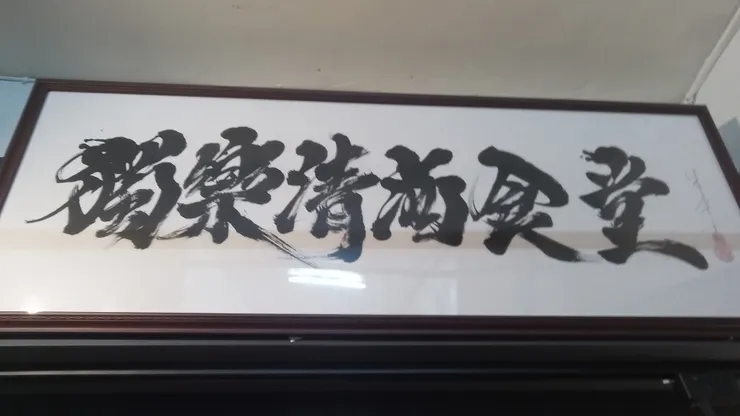 獨樂清酒食堂